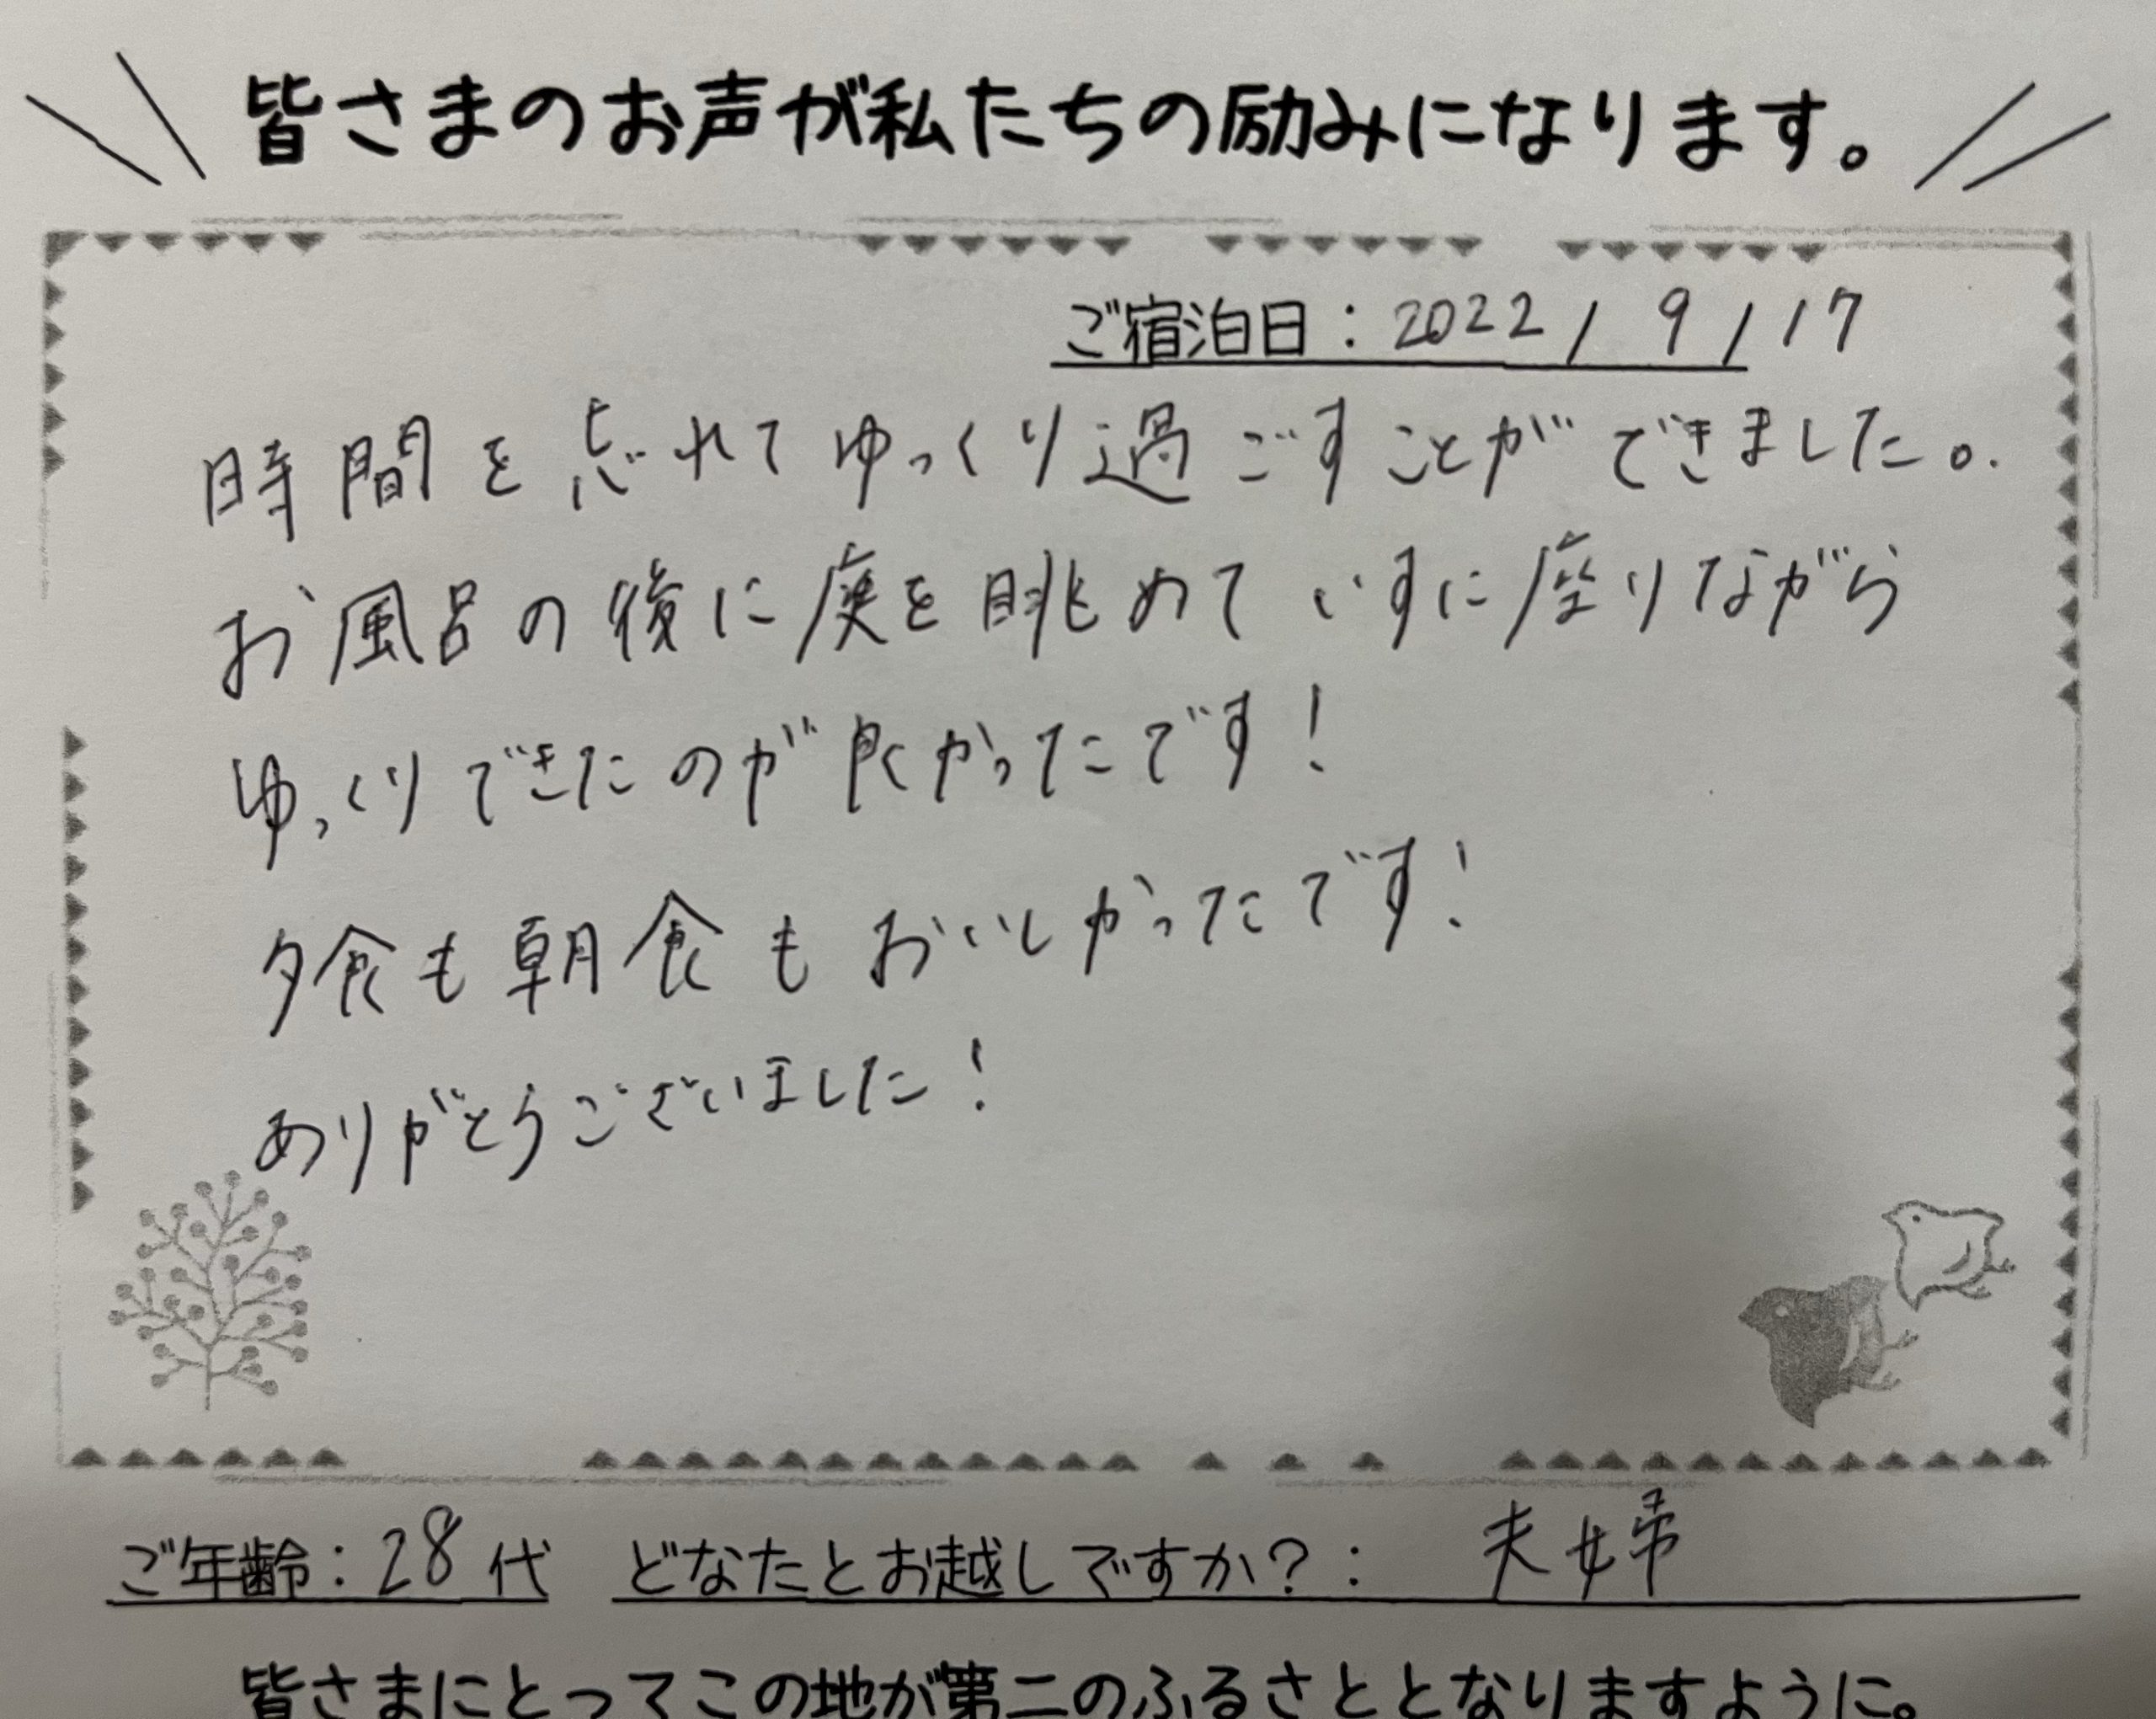 皆さまのお声が私たちの励みになります。
ご宿泊日：2022/9/17
時間を忘れてゆっくり過ごすことができました。
お風呂の後に庭を眺めていすに座りながら
ゆっくりできたのが良かったです!
夕食も朝食もおいしかったです!
ありがとうございました!
ご年齢：28代 どなたとお越しですか?： 夫婦
皆さまにとってこの地が第二のふるさととなりますように。